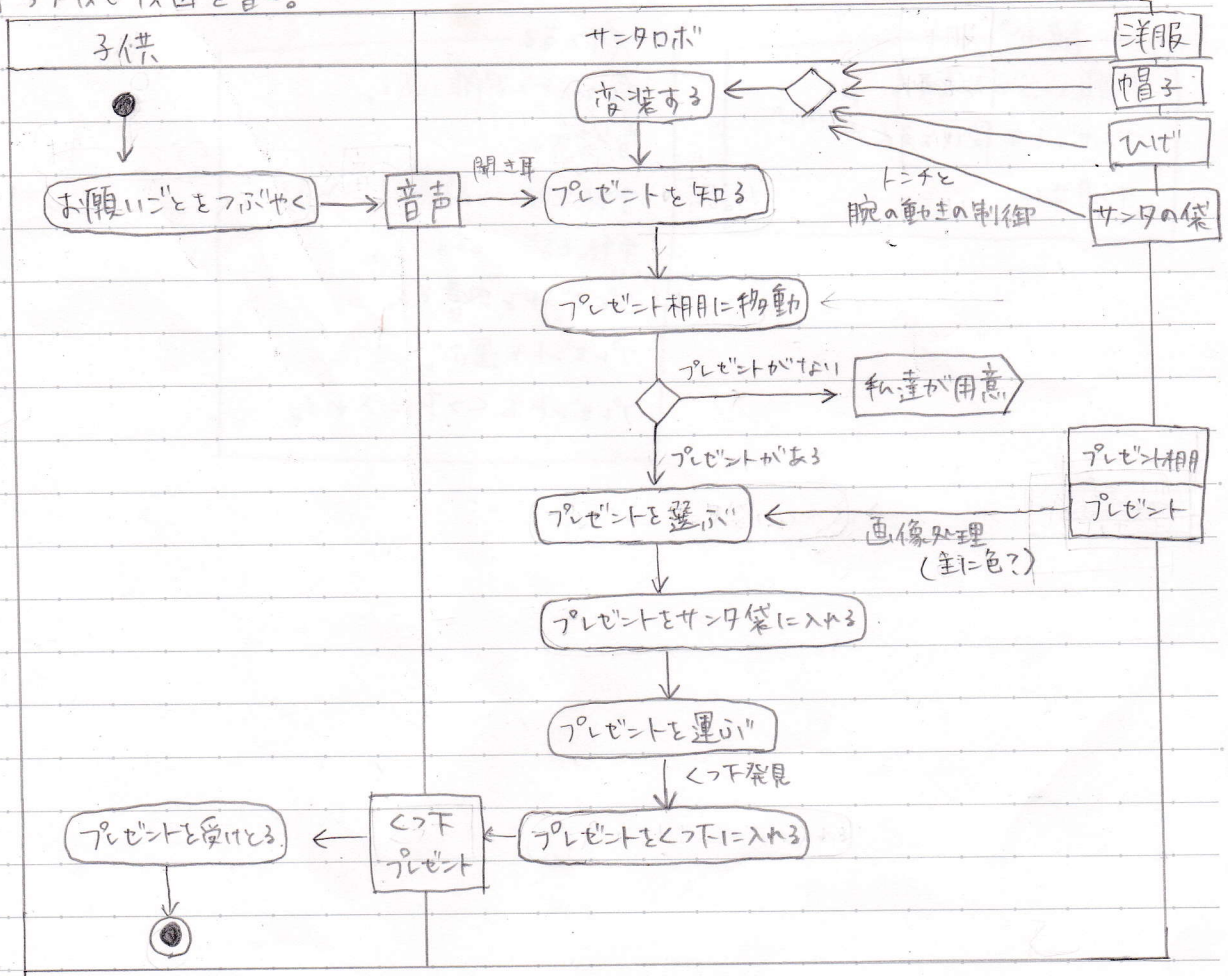 子供
サンタロボ
洋服
帽子
ひげ
サンタの袋
変装する
お願いごとをつぶやく
音声
聞き耳
プレゼントを知る
トンチと
腕の動きの制御
プレゼント棚に移動
プレゼントがない
私達が用意
プレゼントがある
プレゼント棚
プレゼント
プレゼントを選ぶ
画像処理
(主に色?)
プレゼントをサンタ袋に入れる
プレゼントを運ぶ
くつ下発見
プレゼントをくつ下に入れる
くつ下
プレゼント
プレゼントを受けとる